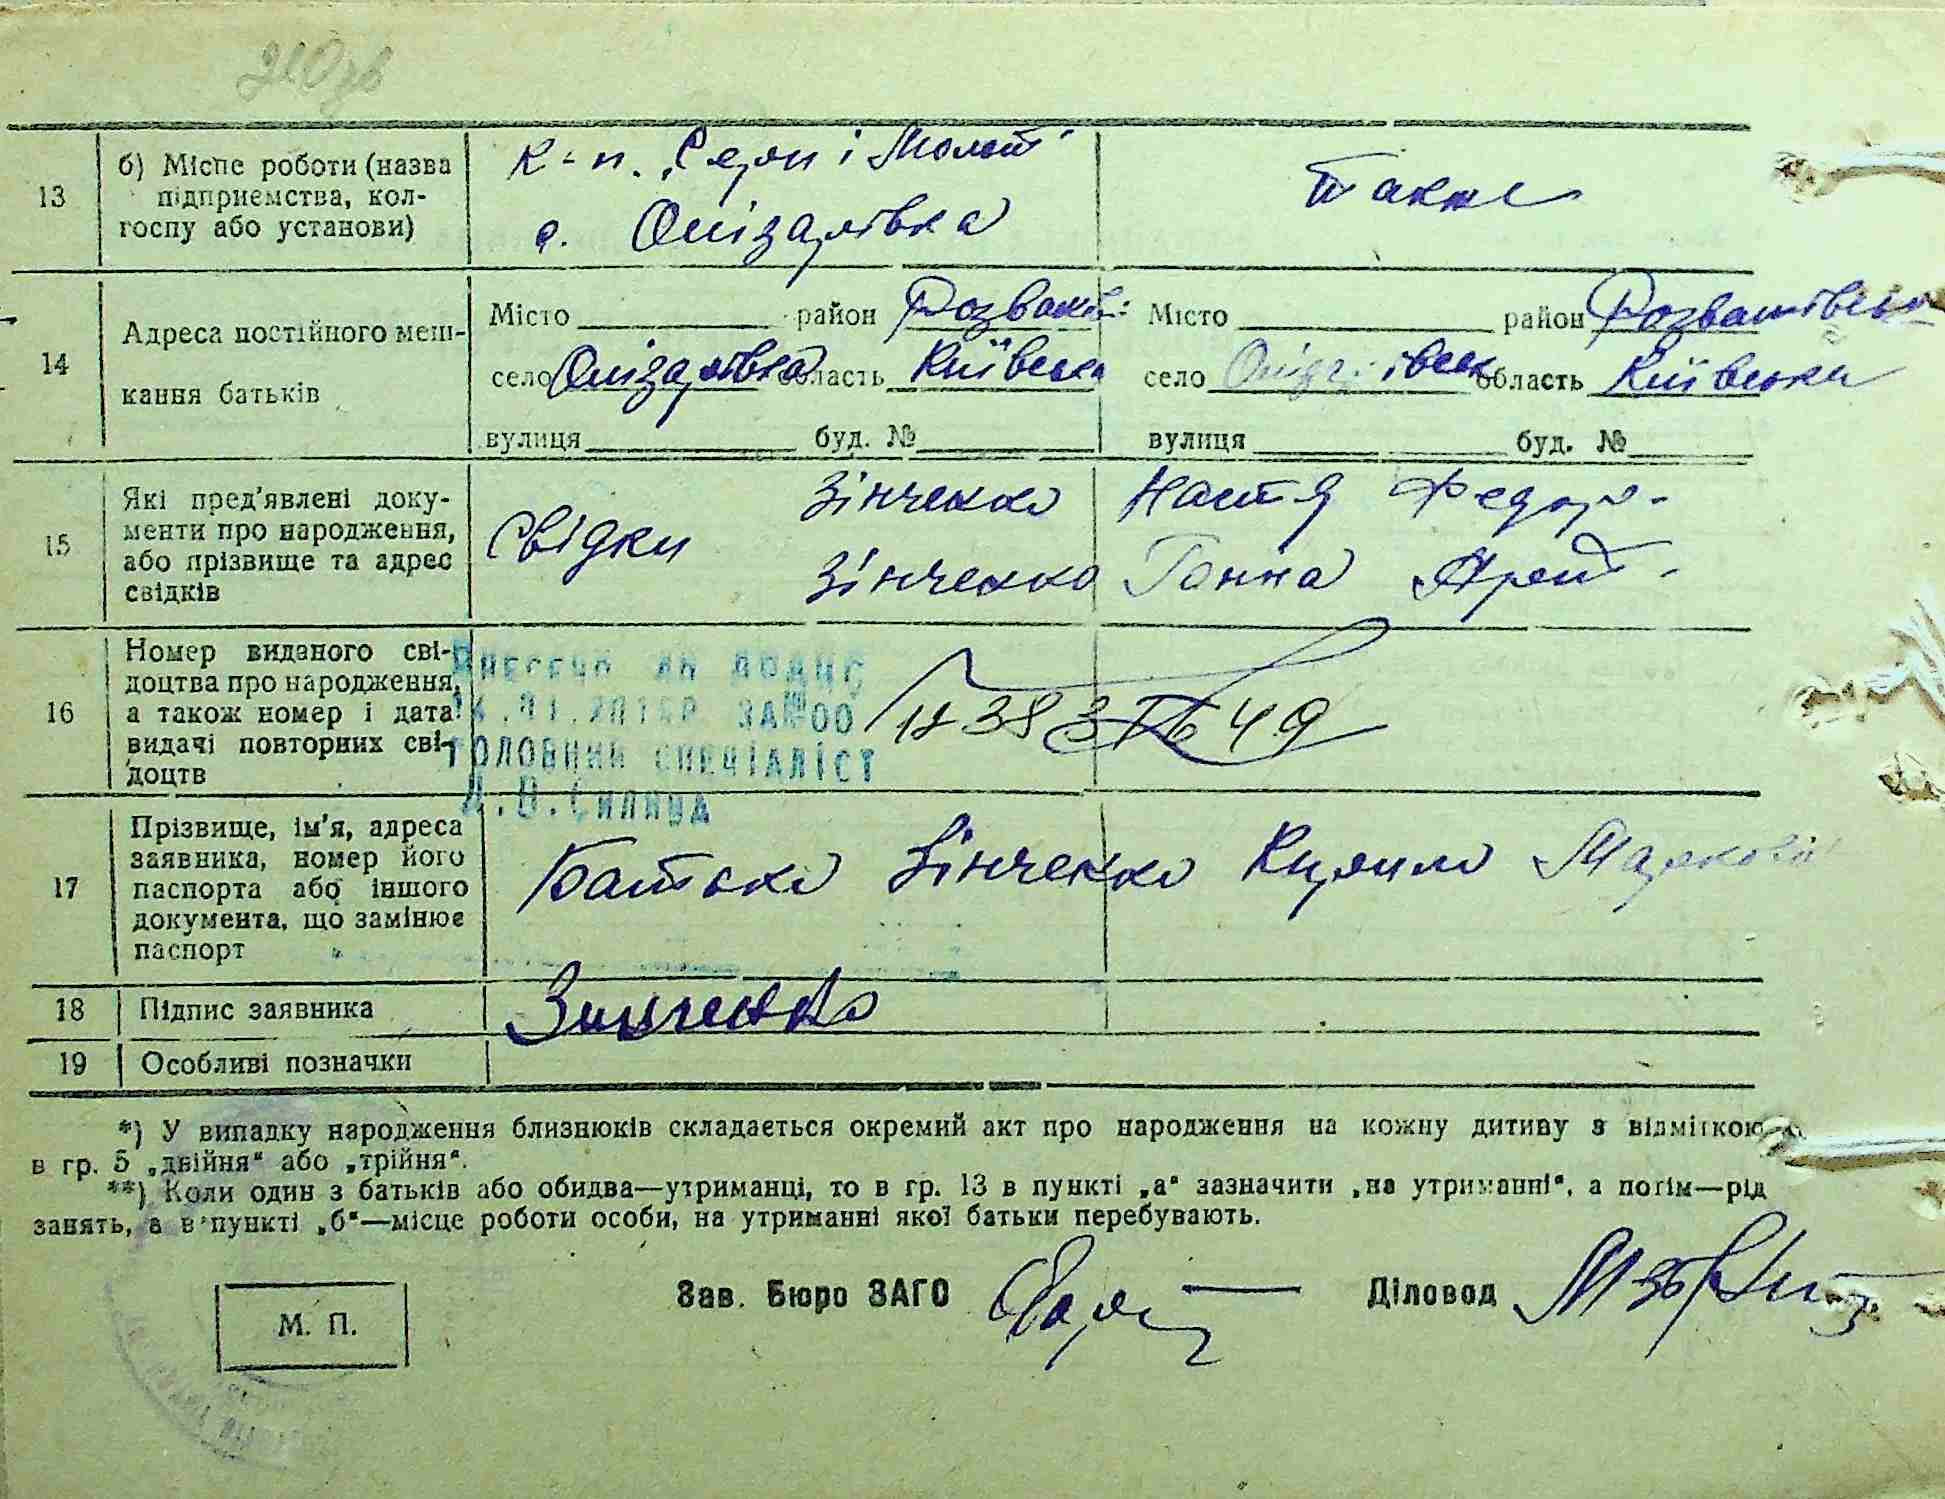 13 б) Місце роботи (назва підприємства, колгоспу або установи)
к-п. „Серп і Молот"
с. Олізарівка
також
14 Адреса постійного мешкання батьків
Місто район Розважів:
село Олізарівка область Київська
вулиця буд. №
Місто район Розважівськ
село область Київська
вулиця буд. №
15 Які пред'явлені документи про народження, або прізвище та адрес свідків
Свідки Зінченко Настя Федор.
Зінченко Ганна Арт.
16 Номер виданого свідоцтва про народження, а також номер і дата видачі повторних свідоцтв
ЗАГ
ГОЛОВНИЙ СПЕЦІАЛІСТ
17 Прізвище, ім'я, адреса заявника, номер його паспорта або іншого документа, що замінює паспорт
Батько Зінченко Кирило Маркович
18 Підпис заявника
Зинченко
19 Особливі позначки
*) У випадку народження близнюків складається окремий акт про народження на кожну дитину з відміткою
в гр. 5 „двійня" або „трійня".
**) Коли один з батьків або обидва—утриманці, то в гр. 13 в пункті „а" зазначити „на утриманні", а потім—рід
занять, а в пункті „б"—місце роботи особи, на утриманні якої батьки перебувають.
Зав. Бюро ЗАГС Діловод
М. П.